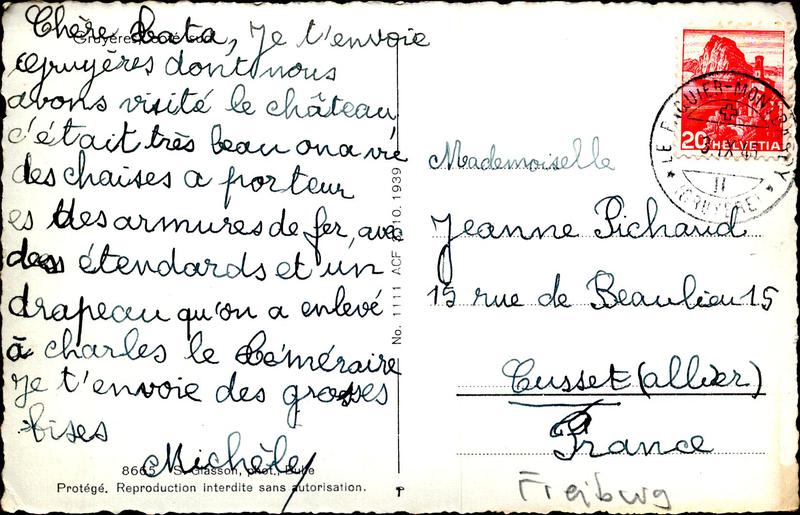 Gruyères, côté sud
Chère Lata, Je t'envoie
Gruyères dont nous
avons visité le château
c'était très beau on a vie
des chaises a porteur
es des armures de fer, avec
des étendards et un
drapeau qu'on a enlevé
à charles le téméraire
Je t'envoie des grosses
bises
Michèle
8665 S. Glasson, phot., Bulle
Protégé. Reproduction interdite sans autorisation.
No. 1111 ACF 10. 1939
HELVETIA
20
LE PAQUIER-MONTBARRY
IX
II
(GRUYERE)
Mademoiselle
Jeanne Pichaud
15 rue de Beaulieu 15
Cusset (allier)
France
Freiburg